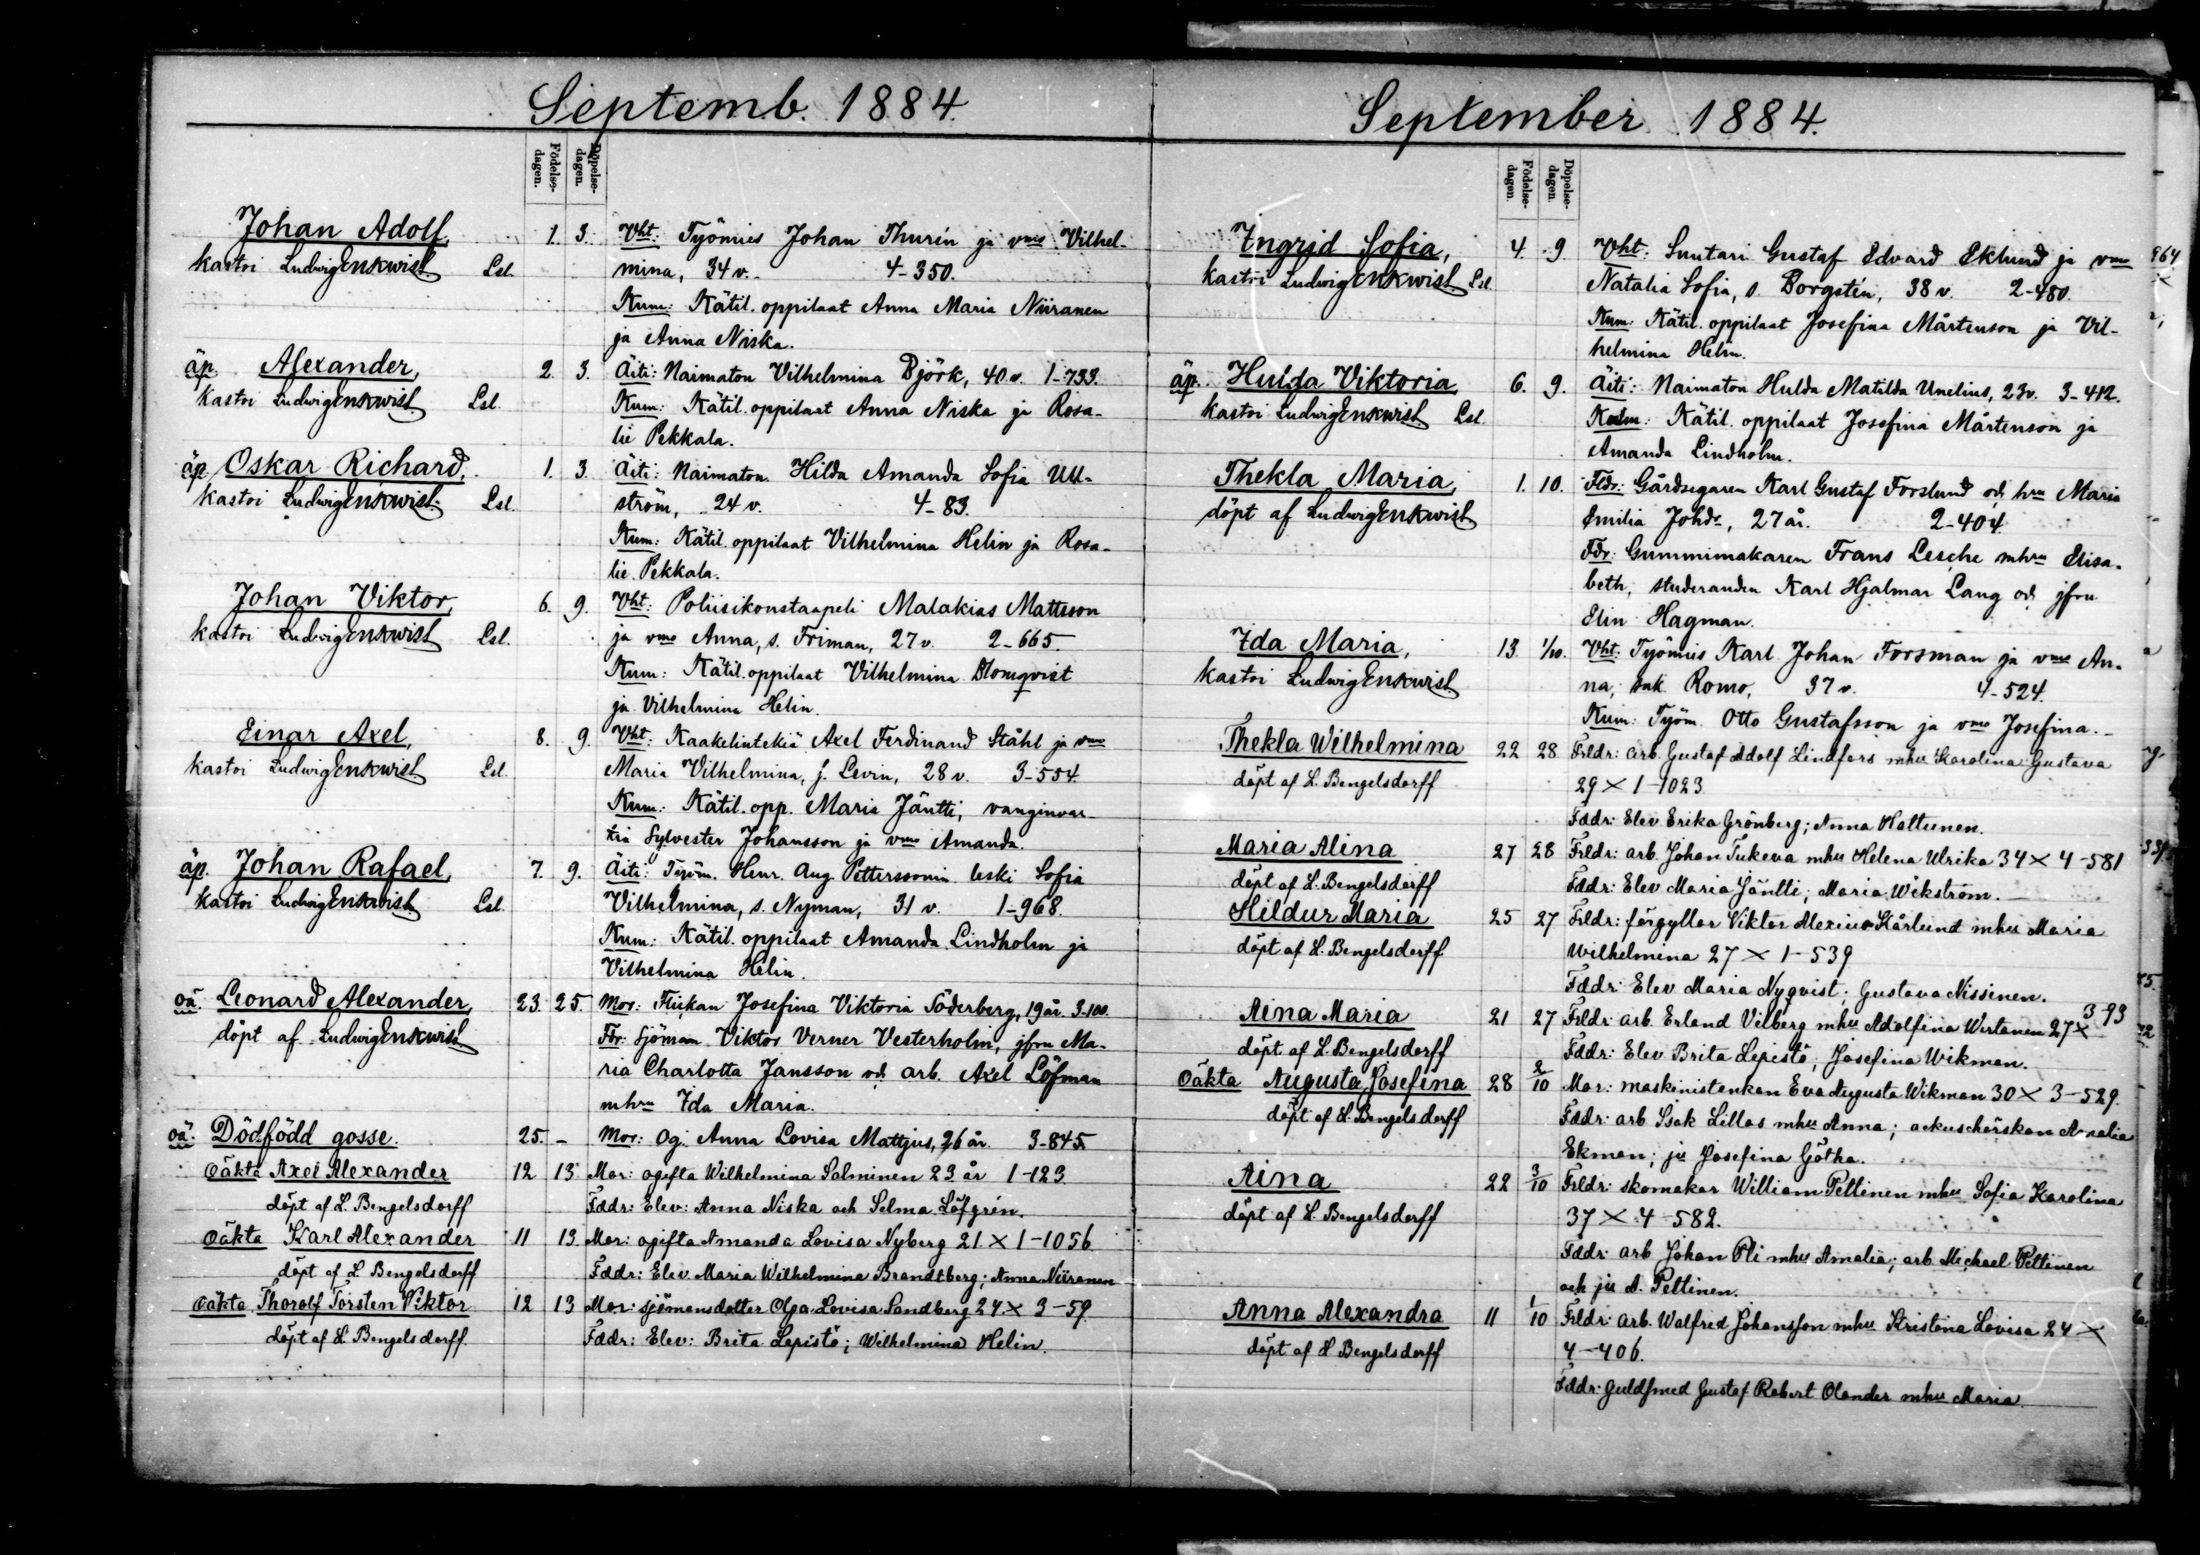 Septemb. 1884.
Födelse-
dagen.
Döpelse-
dagen.
Johan Adolf, 1. 3. Vht: Työmies Johan Thurén ja vmo Vilhel-
kastoi Ludvig Enkwist Lsl. mina, 34 v. 4-350.
Kum: Kätil. oppilaat Anna Maria Niiranen
ja Anna Niska.
äp. Alexander, 2. 3. Äiti: Naimaton Vilhelmina Björk, 40 v. 1-733.
kastoi Ludwig Enkwist Lsl. Kum: Kätil. oppilaat Anna Niska ja Rosa-
lie Pekkala.
äp Oskar Richard, 1. 3. Äiti: Naimaton Hilda Amanda Sofia Utt-
kastoi Ludwig Enkwist Lsl. ström, 24 v. 4-83.
Kum: Kätil. oppilaat Vilhelmina Helin ja Rosa-
lie Pekkala.
Johan Viktor, 6. 9. Vht: Poliisikonstaapeli Malakias Mattsson
kastoi Ludwig Enkwist Lsl. ja vmo Anna, s. Friman, 27 v. 2-665.
Kum: Kätil. oppilaat Vilhelmina Blomqvist
ja Vilhelmina Helin.
Einar Axel, 8. 9. Vht: Kaakelintekiä Axel Ferdinand Ståhl ja vmo
kastoi Ludwig Enkwist Lsl. Maria Vilhelmina, f. Levin, 28 v. 3-554.
Kum: Kätil. opp. Maria Jäntti, vanginvar-
tia Sylvester Johansson ja vmo Amanda.
äp. Johan Rafael, 7. 9. Äiti: Työm. Henr. Aug. Petterssonin leski Sofia
kastoi Ludwig Enkwist Lsl. Vilhelmina, s. Nyman, 31 v. 1-968.
Kum: Kätil. oppilaat Amanda Lindholm ja
Vilhelmina Helin.
oä. Leonard Alexander, 23. 25. Mor: Flickan Josefina Viktoria Söderberg, 19 år. 3-100.
döpt af Ludwig Enkwist Fdr: Sjöman Viktor Verner Vesterholm, jfru Ma-
ria Charlotta Jansson och arb. Axel Löfman
mhru Ida Maria.
oä. Dödfödd gosse. 25. - Mor: Og. Anna Lovisa Mattjus, 26 år. 3-845.
Oäkta Axel Alexander 12 13 Mor: ogifta Wilhelmina Salminen 23 år 1-123
döpt af L. Bengelsdorff Fddr: Elev: Anna Niska och Selma Löfgrén.
Oäkta Karl Alexander 11 13. Mor: ogifta Amanda Lovisa Nyberg 21 × 1-1056
döpt af L Bengelsdorff Fddr: Elev Maria Wilhelmina Brandtberg; Anna Niiranen
Oäkta Thorolf Torsten Viktor 12 13 Mor: sjömansdotter Olga Lovisa Sandberg 24 × 3-59
döpt af L. Bengelsdorff. Fddr: Elev: Brita Lepistö; Wilhelmina Helin.
September 1884.
Födelse-
dagen.
Döpelse-
dagen.
Ingrid Sofia, 4. 9 Vht: Suutari Gustaf Edvard Eklund ja vmo
kastoi Ludwig Enkwist Lsl. Natalia Sofia, s. Borgstén, 38 v. 2-480.
Kum: Kätil. oppilaat Josefina Mårtenson ja Vil-
helmina Helin.
äp. Hulda Viktoria 6. 9. Äiti: Naimaton Hulda Matilda Unelius, 23 v. 3-412.
kastoi Ludwig Enkwist Lsl. Kum: Kätil. oppilaat Josefina Mårtenson ja
Amanda Lindholm.
Thekla Maria, 1. 10. Fldr: Gårdsegaren Karl Gustaf Forslund och hru Maria
döpt af Ludwig Enkwist Emilia Johdr, 27 år. 2-404.
Fdr: Gummimakaren Frans Lesche mhru Elisa-
beth, studeranden Karl Hjalmar Lang och jfru
Elin Hagman.
Ida Maria, 13. 1/10. Vht: Työmies Karl Johan Forsman ja vmo An-
kastoi Ludwig Enkwist na, suk. Romo, 37 v. 4-524.
Kum: Työm. Otto Gustafsson ja vmo Josefina.
Thekla Wilhelmina 22 28 Frldr: arb. Gustaf Adolf Lindfors mhu Karolina Gustava
döpt af L. Bengelsdorff 29 × 1-1023
Fddr: Elev Erika Grönberg; Anna Hattunen.
Maria Alina 27 28 Frldr: arb. Johan Tukeva mhu Helena Ulrika 34 × 4-581
döpt af L. Bengelsdorff Fddr: Elev Maria Jäntti; Maria Wikström.
Hildur Maria 25 27 Frldr: förgyllar Viktor Alexius Kårlund mhu Maria
döpt af L. Bengelsdorff. Wilhelmina 27 × 1-539
Fddr: Elev Maria Nyqvist; Gustava Nissinen.
Aina Maria 21 27 Frldr: arb. Erland Vilberg mhu Adolfina Wirtanen 27 × 3-93
döpt af L. Bengelsdorff Fddr: Elev Brita Lepistö, Josefina Wikman.
Oäkta Augusta Josefina 28 2/10 Mor: maskinistenkan Eva Augusta Wikman 30 × 3-529.
döpt af L. Bengelsdorff Fddr: arb Isak Lillas mhu Anna; ackuscherskan Amalia
Ekman; ju Josefina Götha.
Aina 22 3/10 Frldr: skomakar William Peltinen mhu Sofia Karolina
döpt af L. Bengelsdorff 37 × 4-582.
Fddr: arb. Johan Pli mhu Amalia; arb. Michael Peltinen
och ju A. Peltinen.
Anna Alexandra 11 1/10 Frldr: arb. Walfred Johansson mhu Kristina Lovisa 24 ×
döpt af L Bengelsdorff 4-406.
Fddr: guldsmed Gustaf Robert Olander mhu Maria